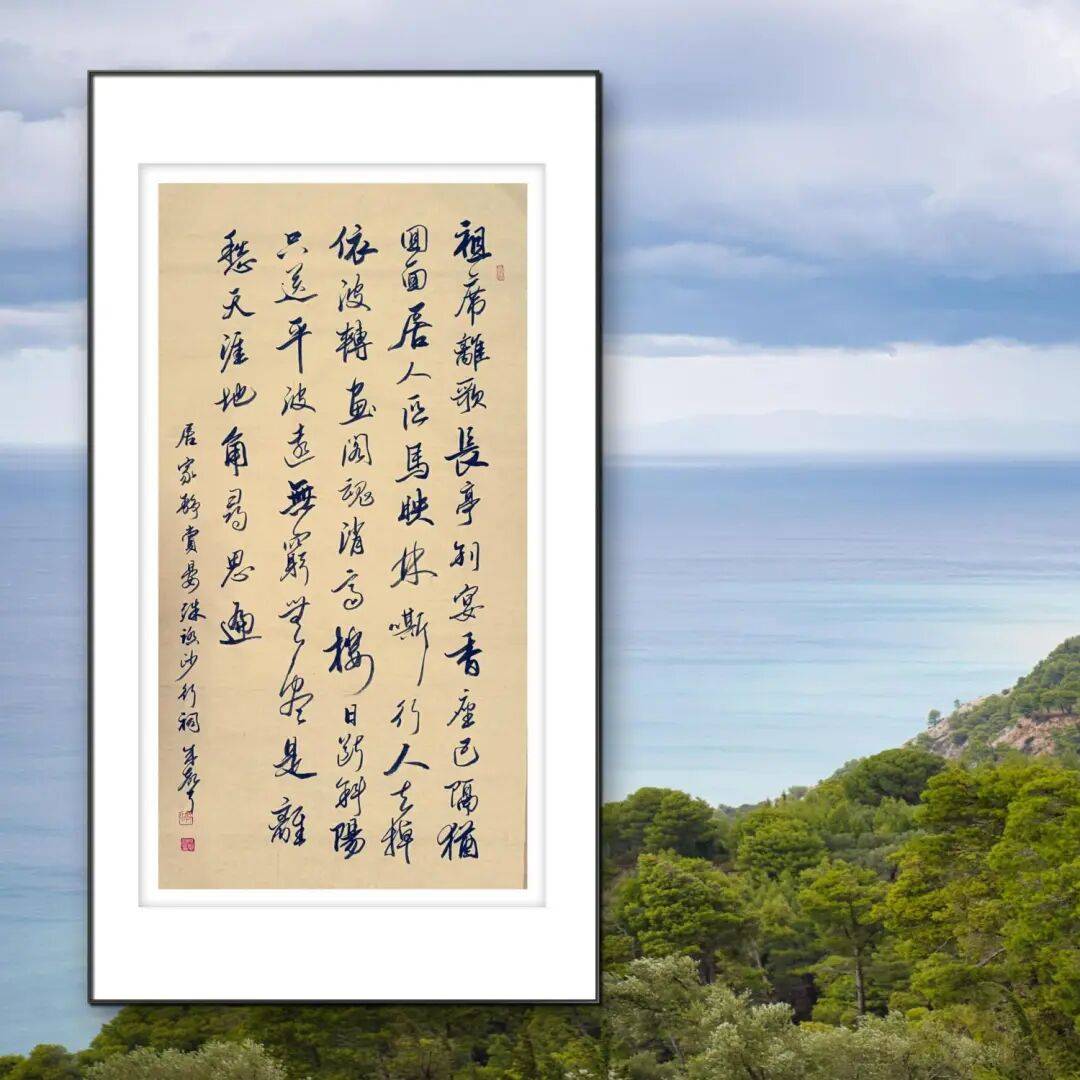 祖席離歌長亭別宴香塵已隔猶
回面居人匹馬映林嘶行人去棹
依波轉畫閣魂消高樓目斷斜陽
只送平波遠無窮無盡是離
愁天涯地角尋思遍
居家靜賞晏殊踏沙行詞